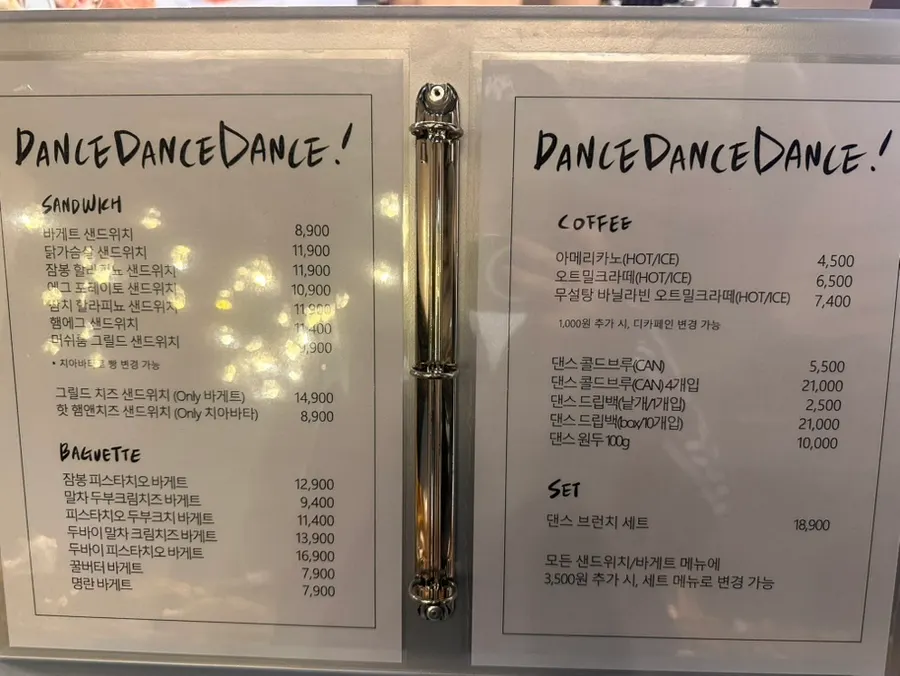 DANCEDANCEDANCE!
SANDWICH
바게트 샌드위치 8,900
닭가슴살 샌드위치 11,900
잠봉 할라피뇨 샌드위치 11,900
에그 포테이토 샌드위치 10,900
참치 할라피뇨 샌드위치 11,900
햄에그 샌드위치 11,400
머쉬룸 그릴드 샌드위치
• 치아바타로 빵 변경 가능
그릴드 치즈 샌드위치 (Only 바게트) 14,900
핫 햄앤치즈 샌드위치 (Only 치아바타) 8,900
BAGUETTE
잠봉 피스타치오 바게트 12,900
말차 두부크림치즈 바게트 9,400
피스타치오 두부크치 바게트 11,400
두바이 말차 크림치즈 바게트 13,900
두바이 피스타치오 바게트 16,900
꿀버터 바게트 7,900
명란 바게트 7,900
DANCEDANCEDANCE!
COFFEE
아메리카노(HOT/ICE) 4,500
오트밀크라떼(HOT/ICE) 6,500
무설탕 바닐라빈 오트밀크라떼(HOT/ICE) 7,400
1,000원 추가 시, 디카페인 변경 가능
댄스 콜드브루(CAN) 5,500
댄스 콜드브루(CAN) 4개입 21,000
댄스 드립백(낱개/1개입) 2,500
댄스 드립백(box/10개입) 21,000
댄스 원두 100g 10,000
SET
댄스 브런치 세트 18,900
모든 샌드위치/바게트 메뉴에
3,500원 추가 시, 세트 메뉴로 변경 가능